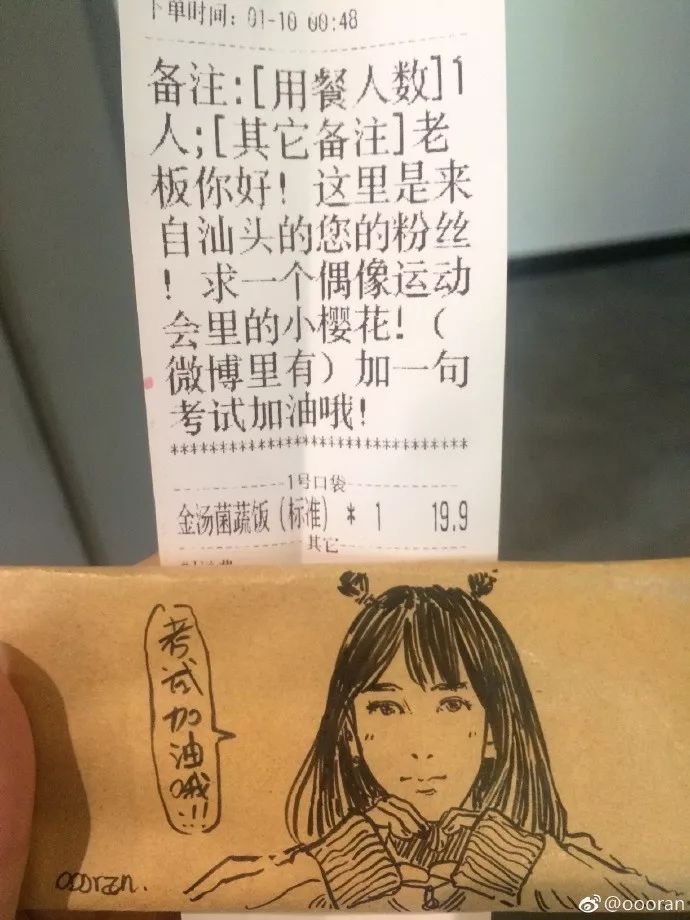 下单时间: 01-10 00:48
备注:[用餐人数]1
人;[其它备注]老
板你好! 这里是来
自汕头的您的粉丝
! 求一个偶像运动
会里的小樱花! (
微博里有) 加一句
考试加油哦!
**********************************
1号口袋
金汤菌蔬饭(标准) * 1 19.9
其它
考试加油哦!!
ooorzn.
@oooran